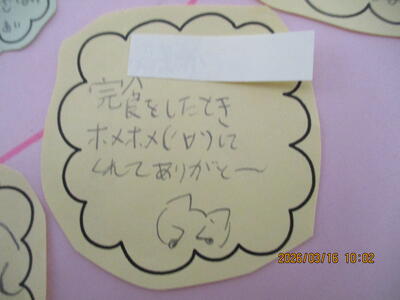 完食をしたとき
ホメホメ('ㅂ')して
くれてありがと〜
2026/03/16 10:02